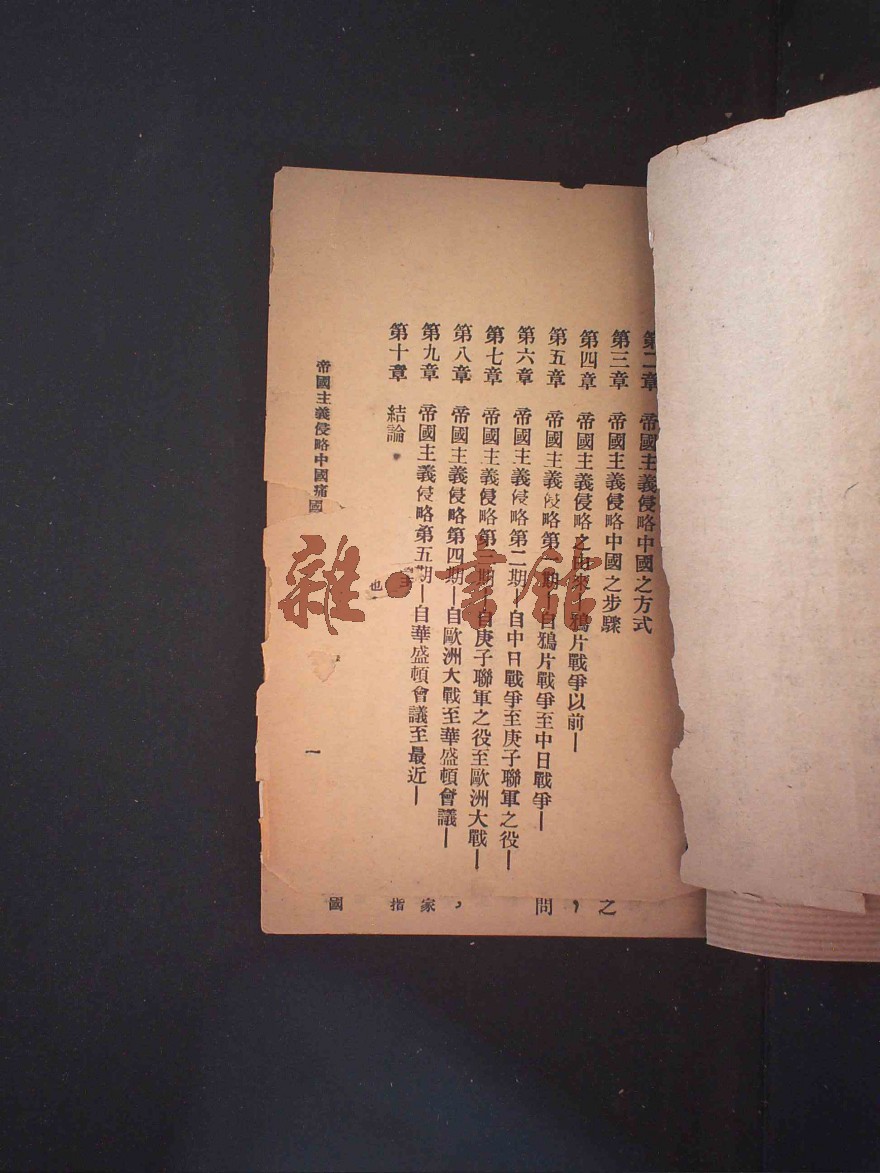 第二章 帝國主義侵略中國之方式
第三章 帝國主義侵略中國之步驟
第四章 帝國主義侵略之由來—鴉片戰爭以前—
第五章 帝國主義侵略第一期—自鴉片戰爭至中日戰爭—
第六章 帝國主義侵略第二期—自中日戰爭至庚子聯軍之役—
第七章 帝國主義侵略第三期—自庚子聯軍之役至歐洲大戰—
第八章 帝國主義侵略第四期—自歐洲大戰至華盛頓會議—
第九章 帝國主義侵略第五期—自華盛頓會議至最近—
第十章 結論
帝國主義侵略中國痛國
一
也
之
,
問
,
家
指
國
雜·書館